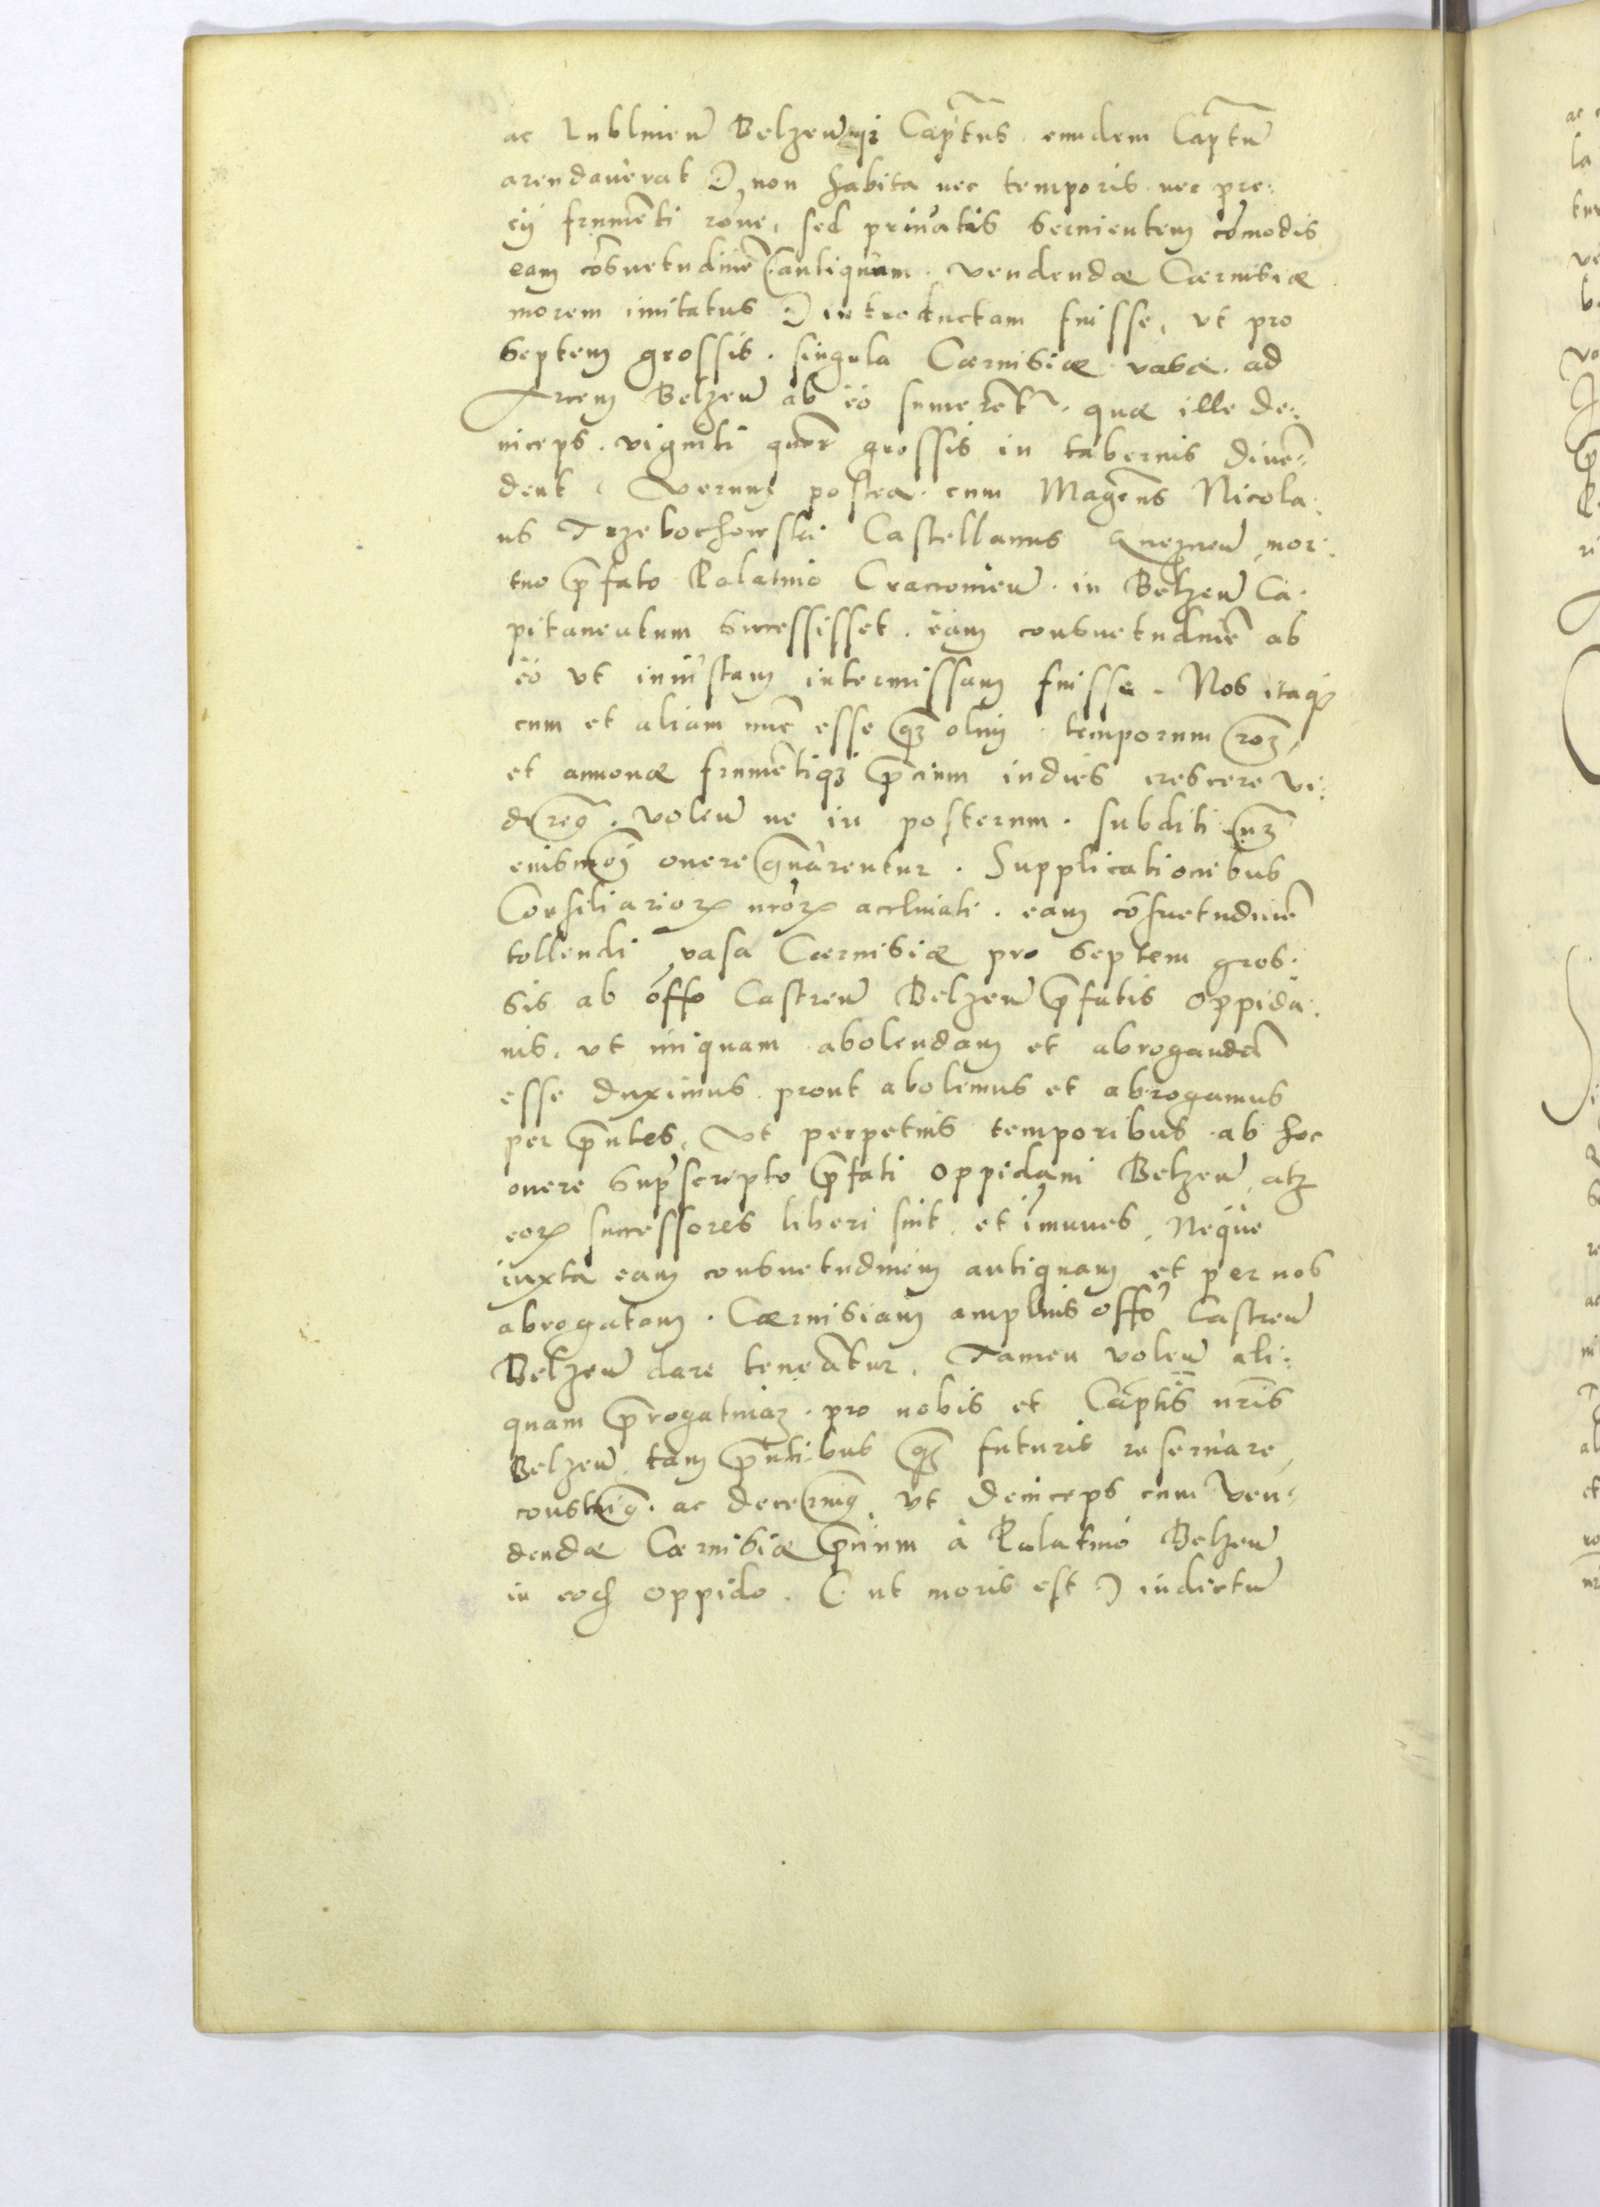 ac Lublinen̄ Belzen̄qz Capt̃us eiusdem Captũ
arendaverat) non habita nec temporis nec pre:
cij frumẽti rõne, sed privatis servientem cõmodis
eam cõsuetudinẽ (antiquam vendendæ Cærvisiæ
morem imitatus) introductam fuisse, vt pro
septem grossis singula Cærvisiæ vasa ad
Arcem Belzen̄ ab eo sumerent̃ quæ ille de:
inceps viginti quõr grossis in tabernis divẽ:
dent Verum postea cum Mag̃cus Nicola:
us Trzebochowski Castellanus Gneznen̄ mor:
tuo p̃fato Palatino Cracovien̄ in Belzen̄ Ca:
pitaneatum successisset eam consuetudinẽ ab
eo vt iniustam intermissam fuisse. Nos itaqꝫ
cum et aliam nũc esse qꝫ olim temporum rõꝫ,
et annonæ frumẽtiqꝫ p̃cium indies crescere vi:
deremꝰ. volen̄ ne in posterum subditi nr̃i
eiusmõi onere gravarentur. Supplicationibus
Consiliarioꝝ nr̃oꝝ acclinati eam cõsuetudinẽ
tollendi vasa Cærvisiæ pro septem gros:
sis ab offõ Castren̄ Belzen̄ p̃fatis oppida:
nis, vt iniquam abolendam et abrogandã
esse duximus prout abolemus et abrogamus
per p̃ntes, Vt perpetuis temporibus ab hoc
onere suprascripto p̃fati oppidani Belzen̄ atqꝫ
eoꝝ successores liberi sint et imunes, Neque
iuxta eam consuetudinem antiquam et per nos
abrogatam Cærvisiam amplius offõ Castren̄
Belzen̄ dare teneãtur. Tamen volen̄ ali:
quam p̃rogativaꝫ pro nobis et Capt̃is nr̃is
Belzen̄ tam p̃ntibus qꝫ futuris reservare,
constuimꝰ ac decernimꝰ vt deinceps cum ven:
dendæ Cærvisiæ p̃cium à Palatino Belzen̄
in eodꝫ oppido (ut moris est) indictũ